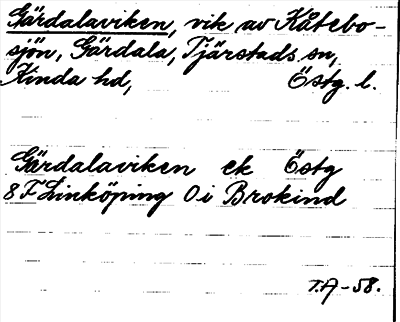 Gärdalaviken, vik av Kåtebo-
sjön, Gärdala, Tjärstads sn,
Kinda hd, Östg. l.
Gärdalaviken ek Östg
8 F Linköping 0 i Brokind
T.A-58.